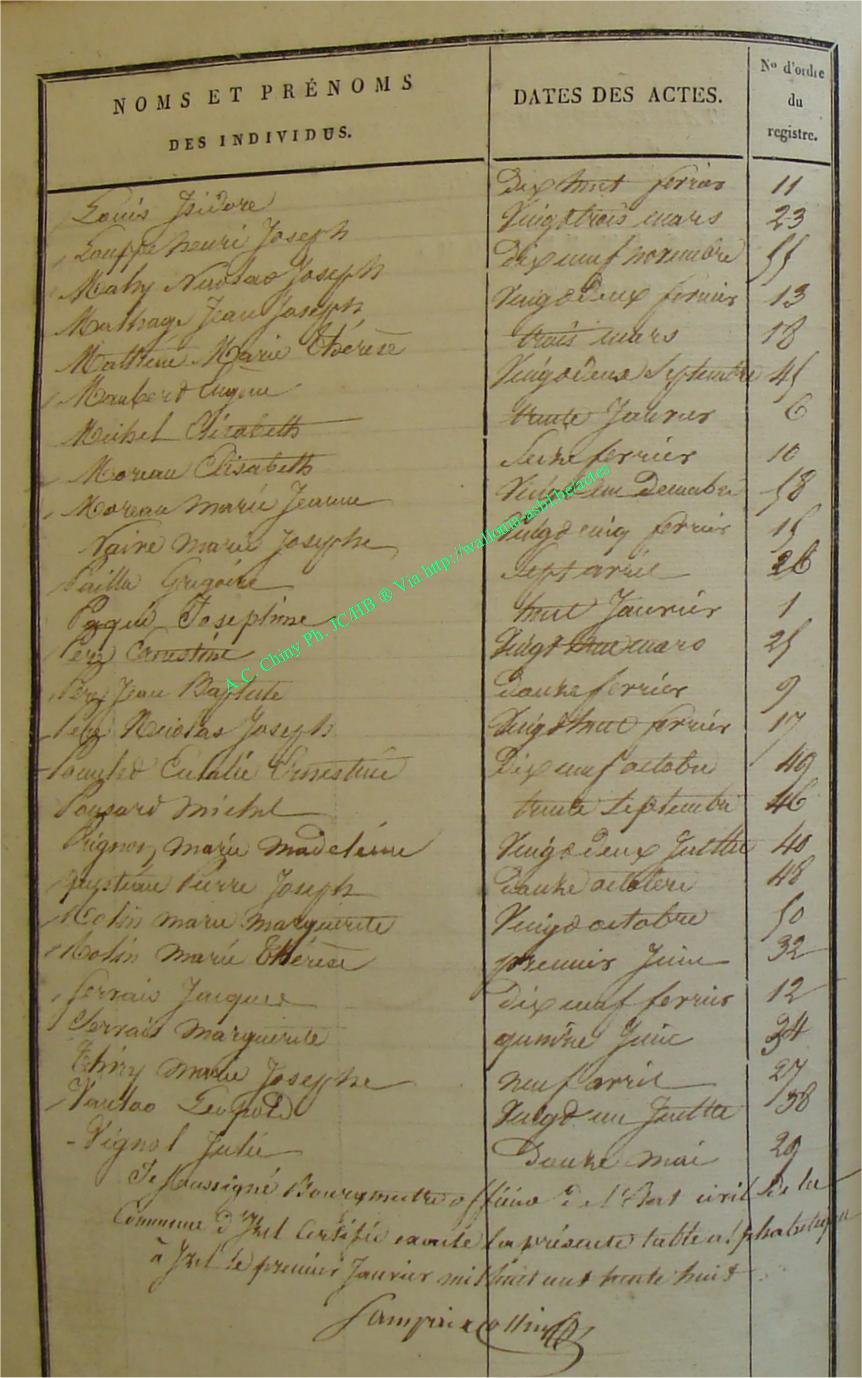 NOMS ET PRÉNOMS
DES INDIVIDUS.
DATES DES ACTES.
No d'ordre
du
registre.
Louis Isidore Dix huit fevrier 11
Louppe henri Joseph Vingt trois mars 23
Mahy Nicolas Joseph Dix neuf novembre 55
Mathage Jean Joseph Vingt deux fevrier 13
Mathieu Marie Thérèse trois mars 18
Maubert Eugène Vingt deux Septembre 45
Michel Elisabeth trente Janvier 6
Moreau Elisabeth Seize fevrier 10
Moreau marie Jeanne Vingt un Decembre 58
Naire marie Josephe Vingt cinq fevrier 15
Pailla Grégoire Sept avril 26
Josephine huit Janvier 1
Ernestine Vingt huit mars 25
Jean Baptiste Douze fevrier 9
Nicolas Joseph Vingt huit fevrier 17
Eulalie Ernestine Dix neuf octobre 49
Ponsard michel trente Septembre 46
Pignon, marie madeleine Vingt deux Juillet 40
Pierre Joseph Douze octobre 48
Rolin marie marguerite Vingt octobre 50
Rolin marie Thérèse premier Juin 32
Servais Jacques Dix neuf fevrier 12
Servais marguerite quinze Juin 34
Thiry marie Josephe neuf avril 27
Léopold Vingt un Juillet 38
Vignol Julie Douze mai 29
Je Soussigné Bourgmestre officier de l'Etat civil de la
Commune d'Izel Certifie exacte la présente table alphabétique
à Izel le premier Janvier mil huit cent trente huit
A.C. Chiny Ph. JCHB ® Via http://wallonia-asbl.be/actes